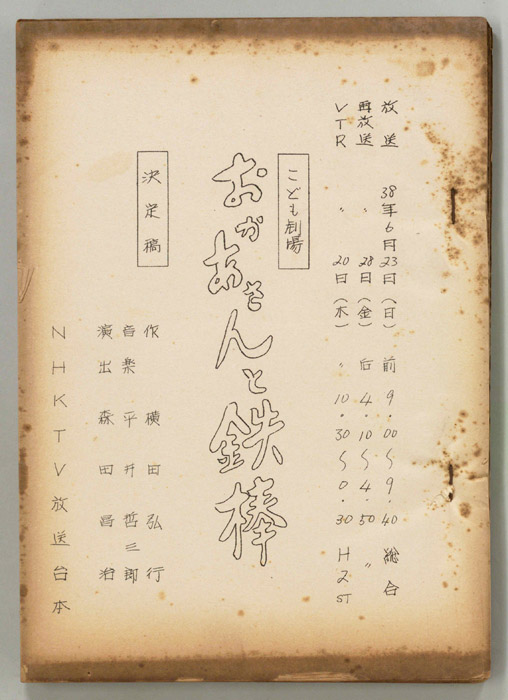 放送 38年6月23日(日) 前 9.00〜9.40 総合
再放送 〃 28日(金) 后 4.10〜4.50 〃
VTR 〃 20日(木) 〃 10.30〜0.30 H2ST
こども劇場
おかあさんと鉄棒
決定稿
作 横田弘行
音楽 平井哲三郎
演出 森田昌治
NHKTV放送台本